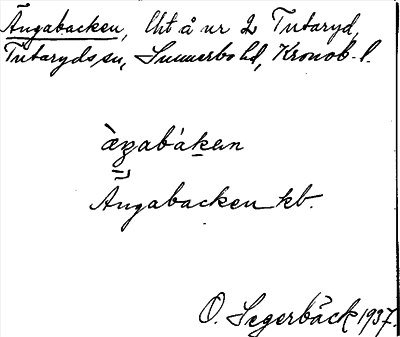 Ängabacken, lht å nr 2 Tutaryd,
Tutaryds sn, Sunnerbo hd, Kronob. l.
Ängabacken kb.
O. Segerbäck 1937.